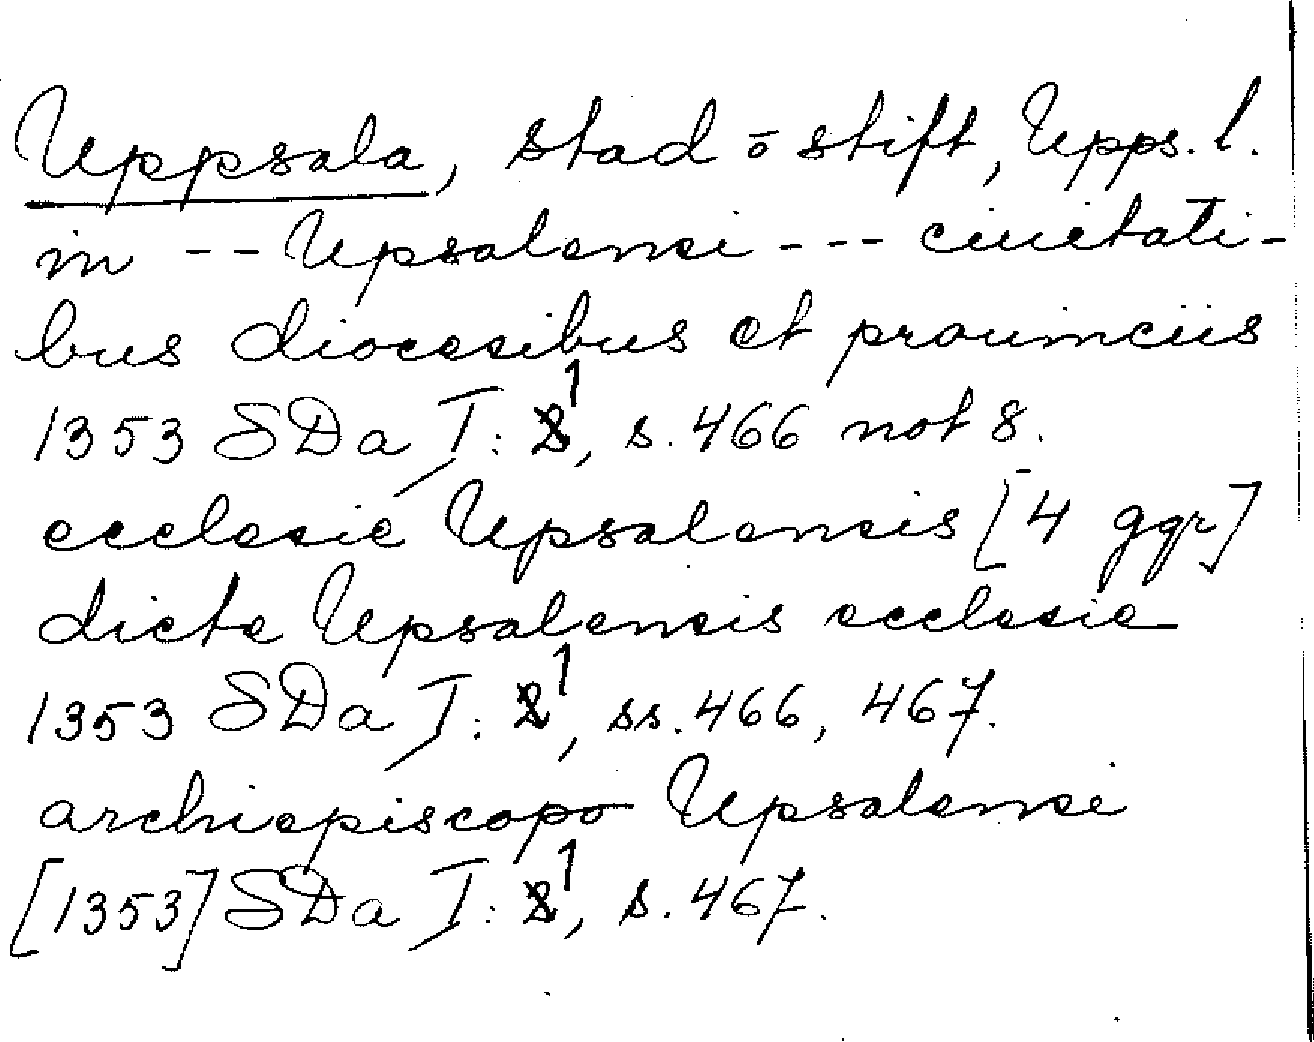 Uppsala, stad ō stift, Upps. l.
in -- Upsalensi --- ciuitati-
bus diocesibus et prouinciis
1353 SDa I: 1, s. 466 not 8.
ecclesie Upsalensis [4 ggr]
dicte Upsalensis ecclesie
1353 SDa I: 1, ss. 466, 467.
archiepiscopo Upsalensi
[1353] SDa I: 1, s. 467.